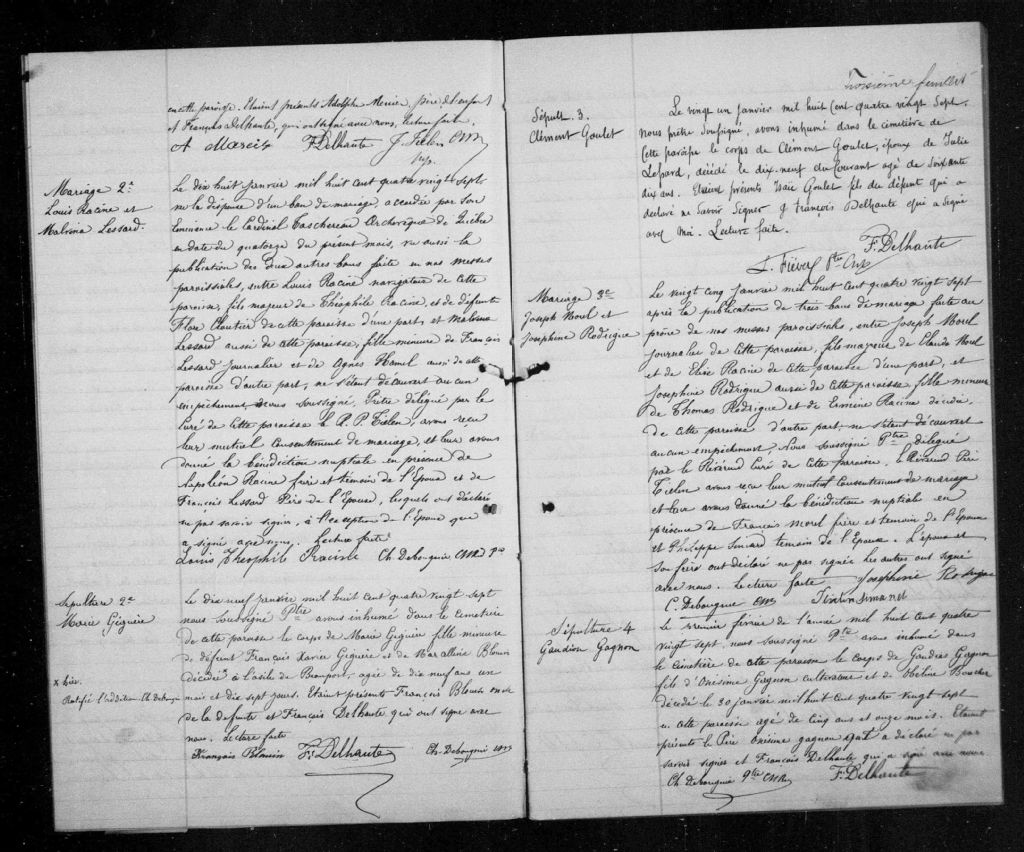 en cette paroisse. Etaient présents Adolphe Mercier, père de l'enfant
et François Delhaute, qui ont signé avec nous, lecture faite.
A Mercier F. Delhaute J. Tielen CSSR
Mariage 2e
Louis Racine et
Malvina Lessard.
Le dix huit janvier mil huit cent quatre vingt sept,
vu la dispense d'un ban de mariage accordée par Son
Eminence le Cardinal Taschereau Archevêque de Québec
en date du quatorze du présent mois, vu aussi la
publication des deux autres bans faite en nos messes
paroissiales, entre Louis Racine navigateur de cette
paroisse, fils majeur de Théophile Racine, et de défunte
Flore Cloutier de cette paroisse d'une part, et Malvina
Lessard aussi de cette paroisse, fille mineure de François
Lessard Journalier et de Agnès Hamel aussi de cette
paroisse d'autre part, ne s'étant découvert aucun
empêchement, nous soussigné, Prêtre délégué par le
Curé de cette paroisse le R. P. Tielen, avons reçu
leur mutuel consentement de mariage, et leur avons
donné la bénédiction nuptiale en présence de
Napoléon Racine frère et témoin de l'Epoux et de
François Lessard Père de l'Epouse, lesquels ont déclaré
ne pas savoir signer, à l'exception de l'Epoux qui
a signé avec nous. Lecture faite
Louis Theophile Racine Ch. Debongnie CSSR Ptre
Sépulture 2e
Marie Giguère
Le dix neuf janvier mil huit cent quatre vingt sept
nous soussigné Ptre avons inhumé dans le cimetière
de cette paroisse le corps de Marie Giguère fille mineure
de défunt François Xavier Giguère et de Marcelline Blouin
décédée x à l'asile de Beauport, agée de dix neuf ans un
mois et dix sept jours. Etaient présents François Blouin oncle
de la defunte et François Delhaute qui ont signé avec
nous. Lecture faite
x hier.
Ratifié l'addition Ch. Debongnie
François Blouin F. Delhaute Ch. Debongnie CSSR
Troisième feuillet
Sépult. 3.
Clément Goulet
Le vingt un janvier mil huit cent quatre vingt Sept,
Nous prêtre soussigné, avons inhumé dans le cimetière de
cette paroisse le corps de Clément Goulet, époux de Julie
Lepard, décédé le dix neuf du courant agé de Soixante
dix ans. Etaient présents Isaïe Goulet fils du défunt qui a
déclaré ne Savoir Signer & François Delhaute qui a Signé
avec Moi. Lecture faite.
F. Delhaute
L. Fièvez Ptre CSSR
Mariage 3e
Joseph Morel et
Josephine Rodrigue
Le vingt cinq Janvier mil huit cent quatre vingt sept
après la publication de trois bans de mariage faite au
prône de nos messes paroissiales, entre Joseph Morel
Journalier de cette paroisse, fils majeur de Claude Morel
et de Elise Racine de cette paroisse d'une part, et
Josephine Rodrigue aussi de cette paroisse fille mineure
de Thomas Rodrigue et de Ermine Racine
de cette paroisse d'autre part, ne s'étant découvert
aucun empêchement, Nous soussigné Ptre délégué
par le Révérend Curé de cette paroisse, le Révérend Père
Tielen avons reçu leur mutuel consentement de mariage
et leur avons donné la bénédiction nuptiale en
présence de François Morel frère et temoin de l'Epoux
et Philippe Simard temoin de l'Epouse. L'épouse et
son frère ont déclaré ne pas signer les autres ont signé
avec nous. Lecture faite Josephine Rodrigue
C. Debongnie CSSR Simard
Sépulture 4
Gaudiose Gagnon
Le premier fevrier de l'année mil huit cent quatre
vingt sept, nous soussigné Ptre avons inhumé dans
le cimetière de cette paroisse le corps de Gaudiose Gagnon
fils d'Onésime Gagnon cultivateur et de Obéline Boucher
décédé le 30 janvier mil huit cent quatre vingt sept
en cette paroisse agé de cinq ans et onze mois. Etaient
présents le Père Onésime gagnon qui a déclaré ne pas
savoir signer et François Delhaute qui a signé avec nous
Ch. Debongnie Ptre CSSR F. Delhaute